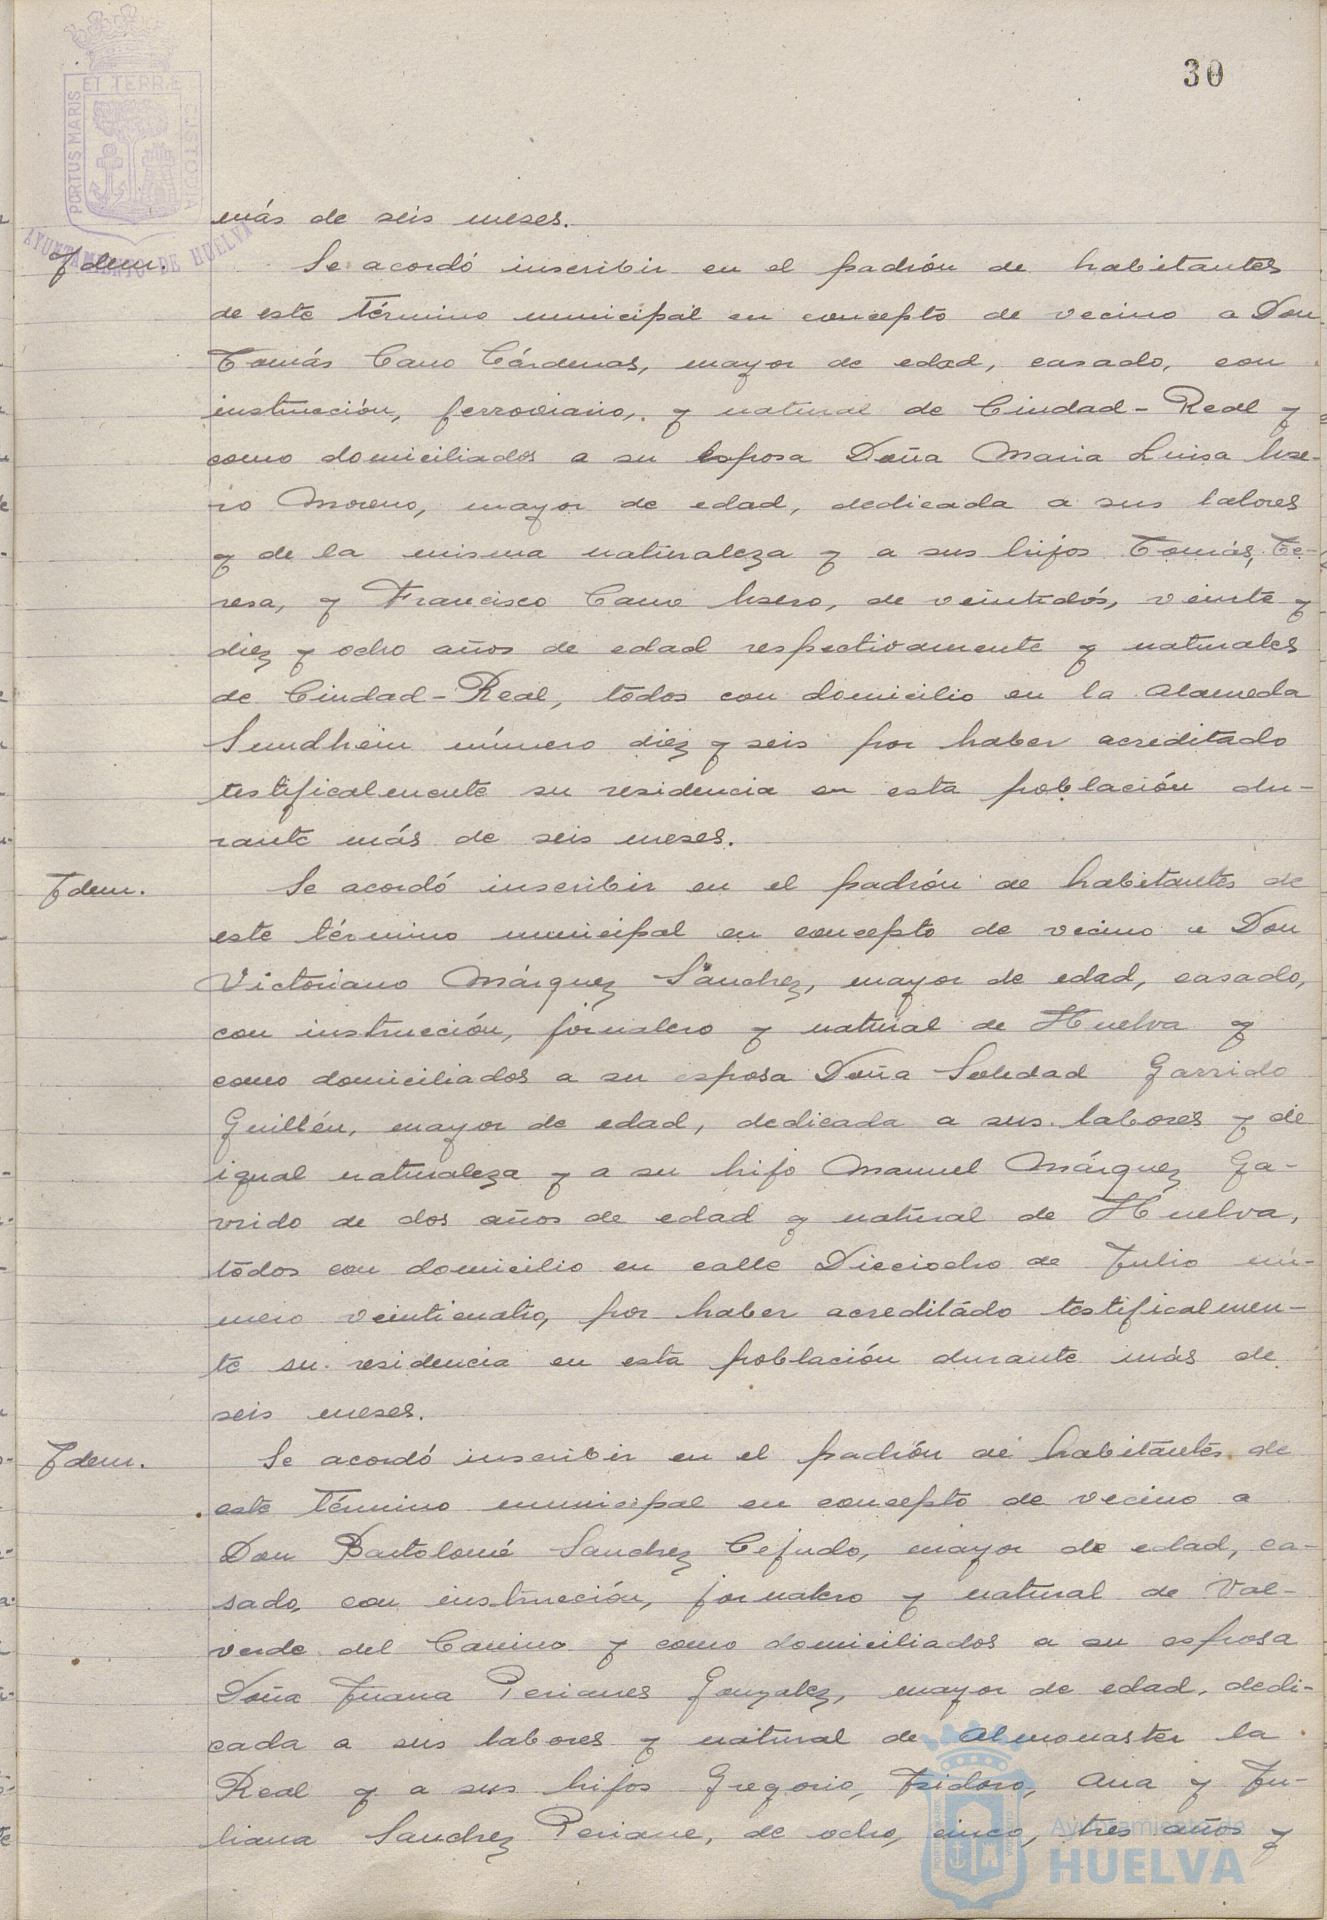 30
PORTUS MARIS ET TERRÆ CUSTODIA
AYUNTAMIENTO DE HUELVA
más de seis meses.
Idem.
Se acordó inscribir en el padrón de habitantes
de este término municipal en concepto de vecino a Don
Tomás Cano Cárdenas, mayor de edad, casado, con
instrucción, ferroviario, y natural de Ciudad-Real y
como domiciliados a su esposa Doña Maria Luisa
ro Moreno, mayor de edad, dedicada a sus labores
y de la misma naturaleza y a sus hijos Tomás, Te-
resa, y Francisco Cano de veintidós, veinte y
diez y ocho años de edad respectivamente y naturales
de Ciudad-Real, todos con domicilio en la Alameda
Sundhein número diez y seis por haber acreditado
testificalmente su residencia en esta población du-
rante más de seis meses.
Idem.
Se acordó inscribir en el padrón de habitantes de
este término municipal en concepto de vecino a Don
Victoriano Márquez Sánchez, mayor de edad, casado,
con instrucción, jornalero y natural de Huelva y
como domiciliados a su esposa Doña Soledad Garrido
Guillén, mayor de edad, dedicada a sus labores y de
igual naturaleza y a su hijo Manuel Márquez Ga-
rrido de dos años de edad y natural de Huelva,
todos con domicilio en calle Dieciocho de Julio nú-
mero veinticuatro, por haber acreditado testificalmen-
te su residencia en esta población durante más de
seis meses.
Idem.
Se acordó inscribir en el padrón de habitantes de
este término municipal en concepto de vecino a
Don Bartolomé Sanchez Cejudo, mayor de edad, ca-
sado, con instrucción, jornalero y natural de Val-
verde del Camino y como domiciliados a su esposa
Doña Juana Perianes Gonzalez, mayor de edad, dedi-
cada a sus labores y natural de Almonaster la
Real y a sus hijos Gregorio, Isidoro, Ana y Ju-
liana Sanchez Periane, de ocho, cinco, tres años y
Ayuntamiento de
HUELVA